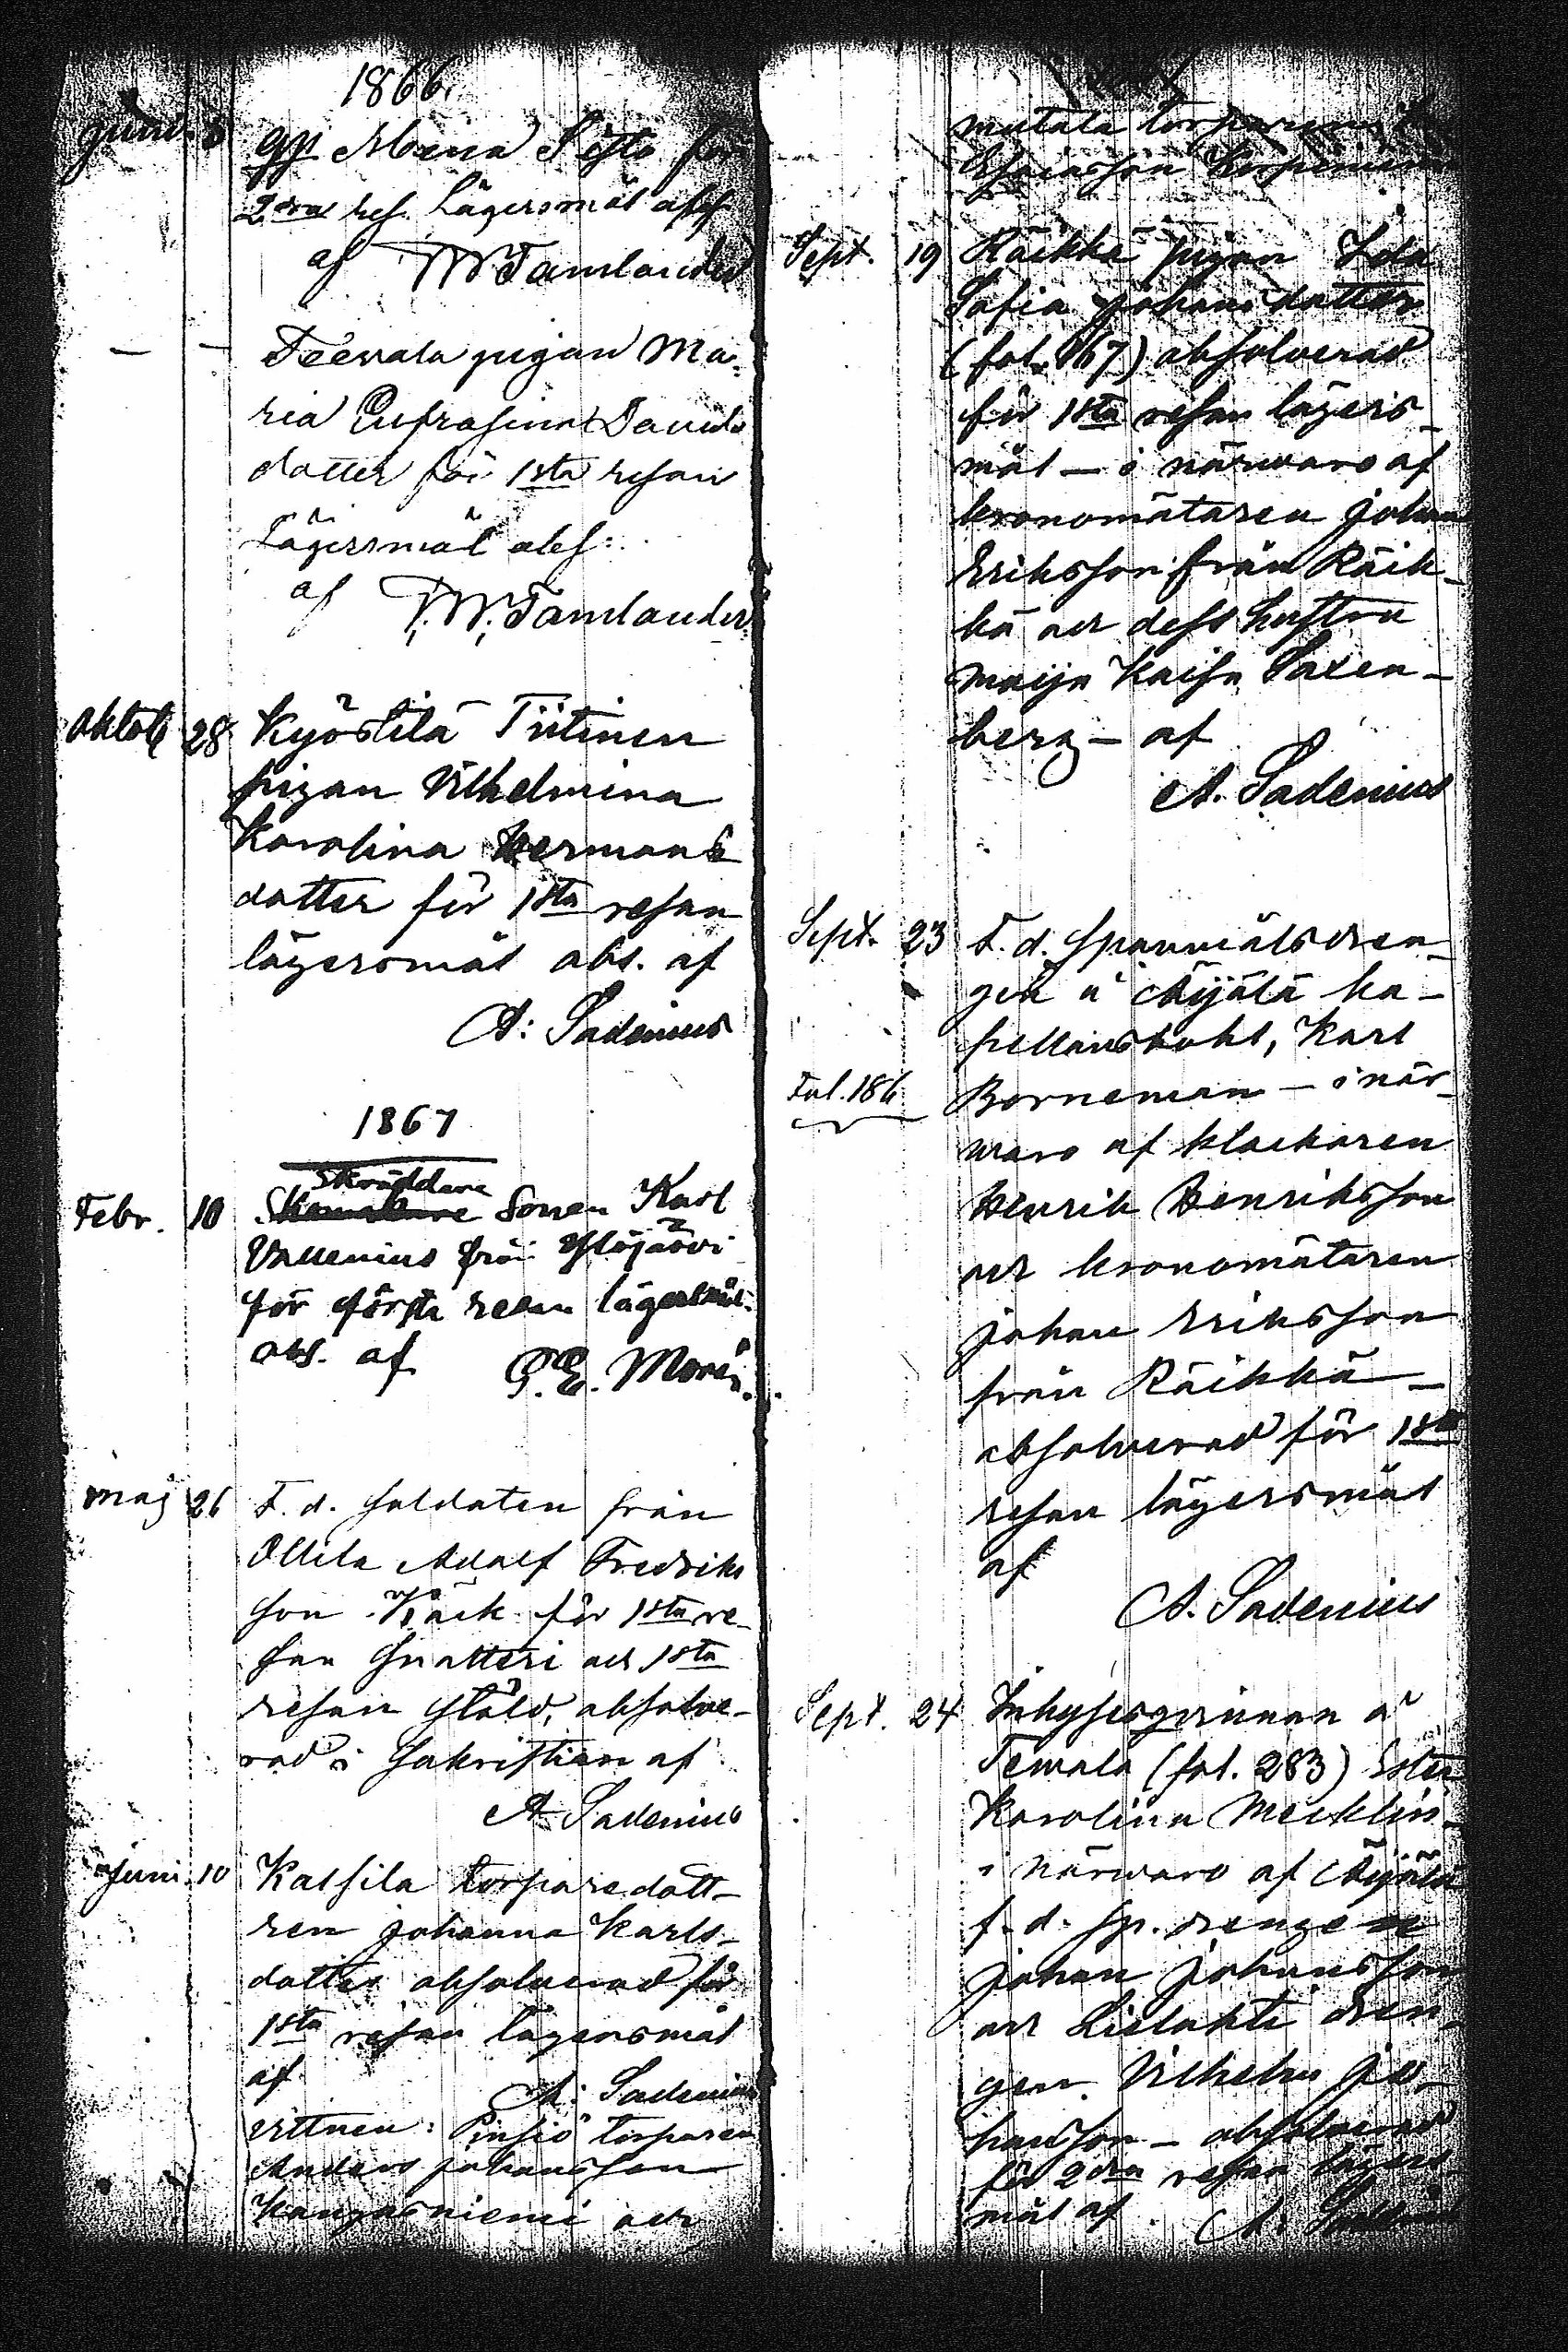 1866.
Juni 3 gp Mina Sisto för
2dra res. Lägersmål abs.
af W Tamlander
— — Teevala pigan Ma-
ria Eufrasina Davids
dotter för 1sta resan
Lägersmål abs:
af T. W. Tamlander
Oktob 28 Kyöstilä Tiitinen
pigan Vilhelmina
Karolina Hermans
dotter för 1sta resan
lägersmål abs. af
A: Sadenius
1867
Skräddare
Febr. 10 sonen Karl
Vallenius från Ylöjärvi
för första resan lägersmål
abs. af G. E. Morén.
Maj 26 F. d. soldaten från
Ollila Adolf Fredriks
son Käck för 1sta re-
san snatteri och 1sta
resan stöld, absolve-
rad i sakristian af
A. Sadenius
Juni 10 Kalsila torparedott-
ren Johanna Karls-
dotter absolverad för
1sta resan lägersmål
af
A: Sadenius
vittnen: Pinsiö torparen
Anders Johansson
Kangasniemi och
Mutala torparen
Esaiasson
Sept. 19 Räikkä pigan Ida
Sofia Johansdotter
(fol. 167) absolverad
för 1sta resan lägers-
mål — i närwaro af
kronomätaren Johan
Eriksson från Räik-
kä och dess hustru
Maija Kaisa Saxen-
berg — af
A. Sadenius
Sept. 23 F. d. spannmålsdren-
gen å Äijälä ka-
pellansbohl, Karl
Fol. 186 Borneman — i när-
waro af klockaren
Henrik Henriksson
och kronomätaren
Johan Eriksson
från Räikkä —
absolverad för 1sta
resan lägersmål
af
A. Sadenius
Sept. 24 Inhysesqvinnan å
Tewala (fol. 283) Ester
Karolina Mecklin —
i närwaro af Äijälä
f. d. sp. drengen
Johan Johansson
och Lielahti dren-
gen Vilhelm Jo-
hansson — absolverad
för 2dra resan lägers-
mål af A. Sadenius